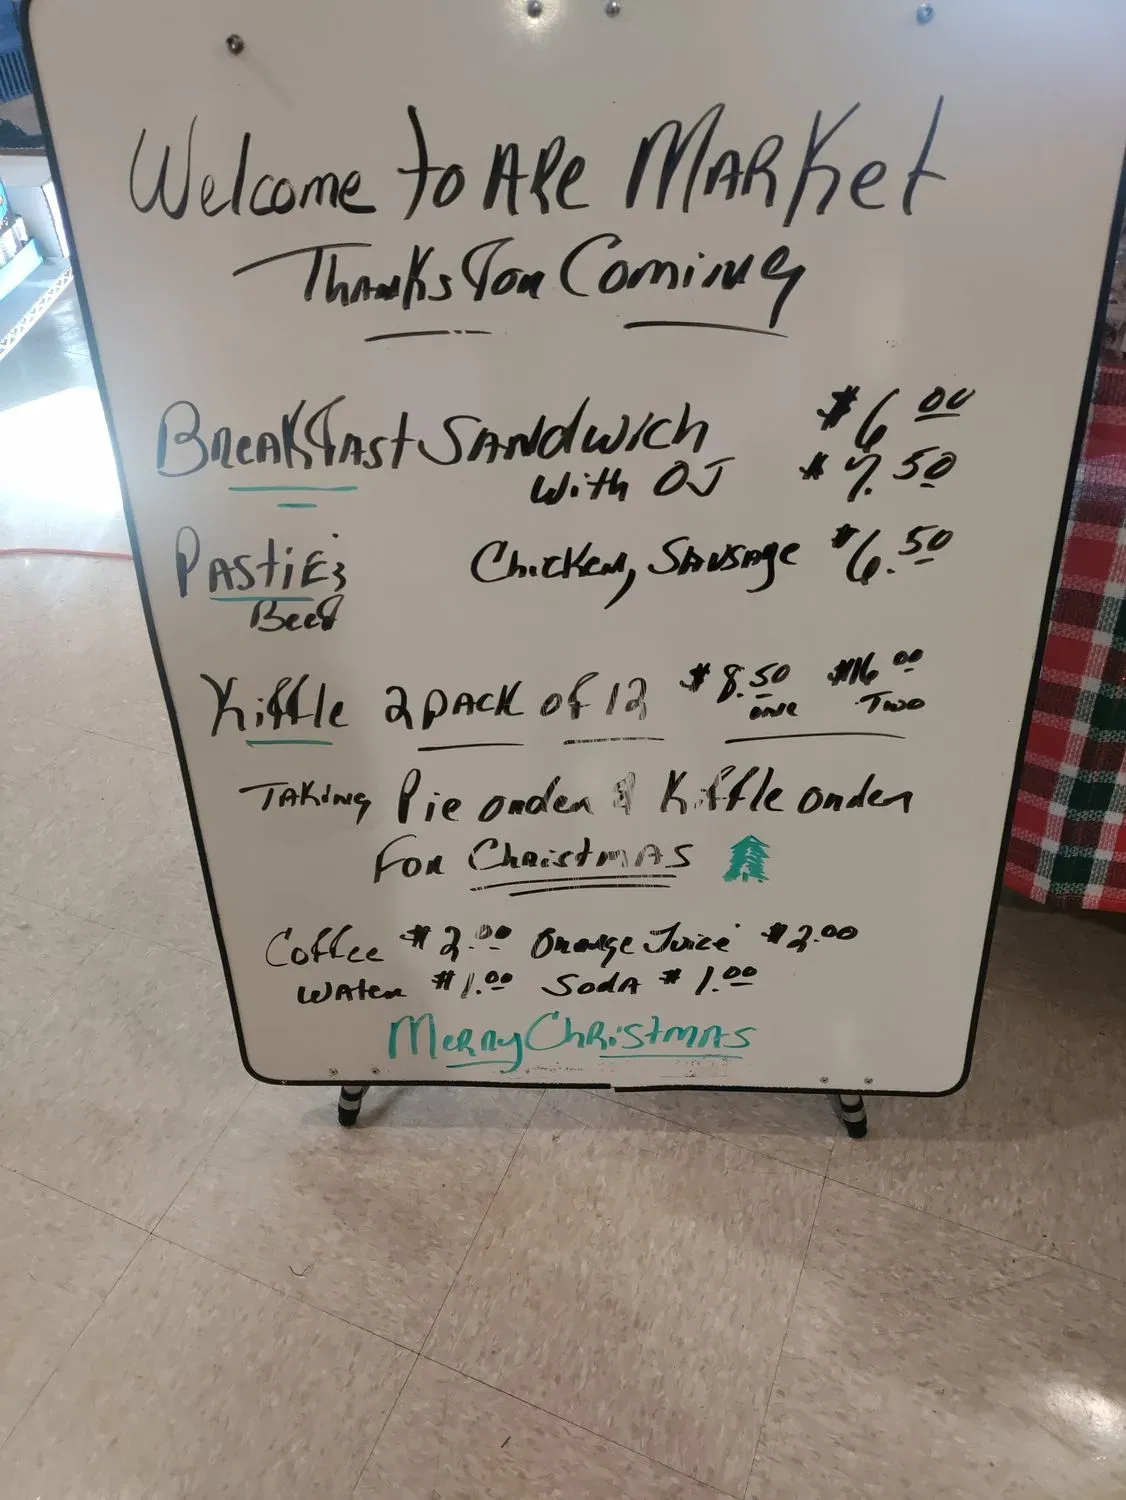 Welcome to APe Market
Thanks For Coming
Breakfast Sandwich $6.00
With OJ $7.50
Pasties Chicken, Sausage $6.50
Beef
Kiffle 2 pack of 12 $8.50 one $16.00 Two
Taking Pie order & Kiffle order
For Christmas
Coffee $2.00 Orange Juice $2.00
Water $1.00 Soda $1.00
Merry Christmas